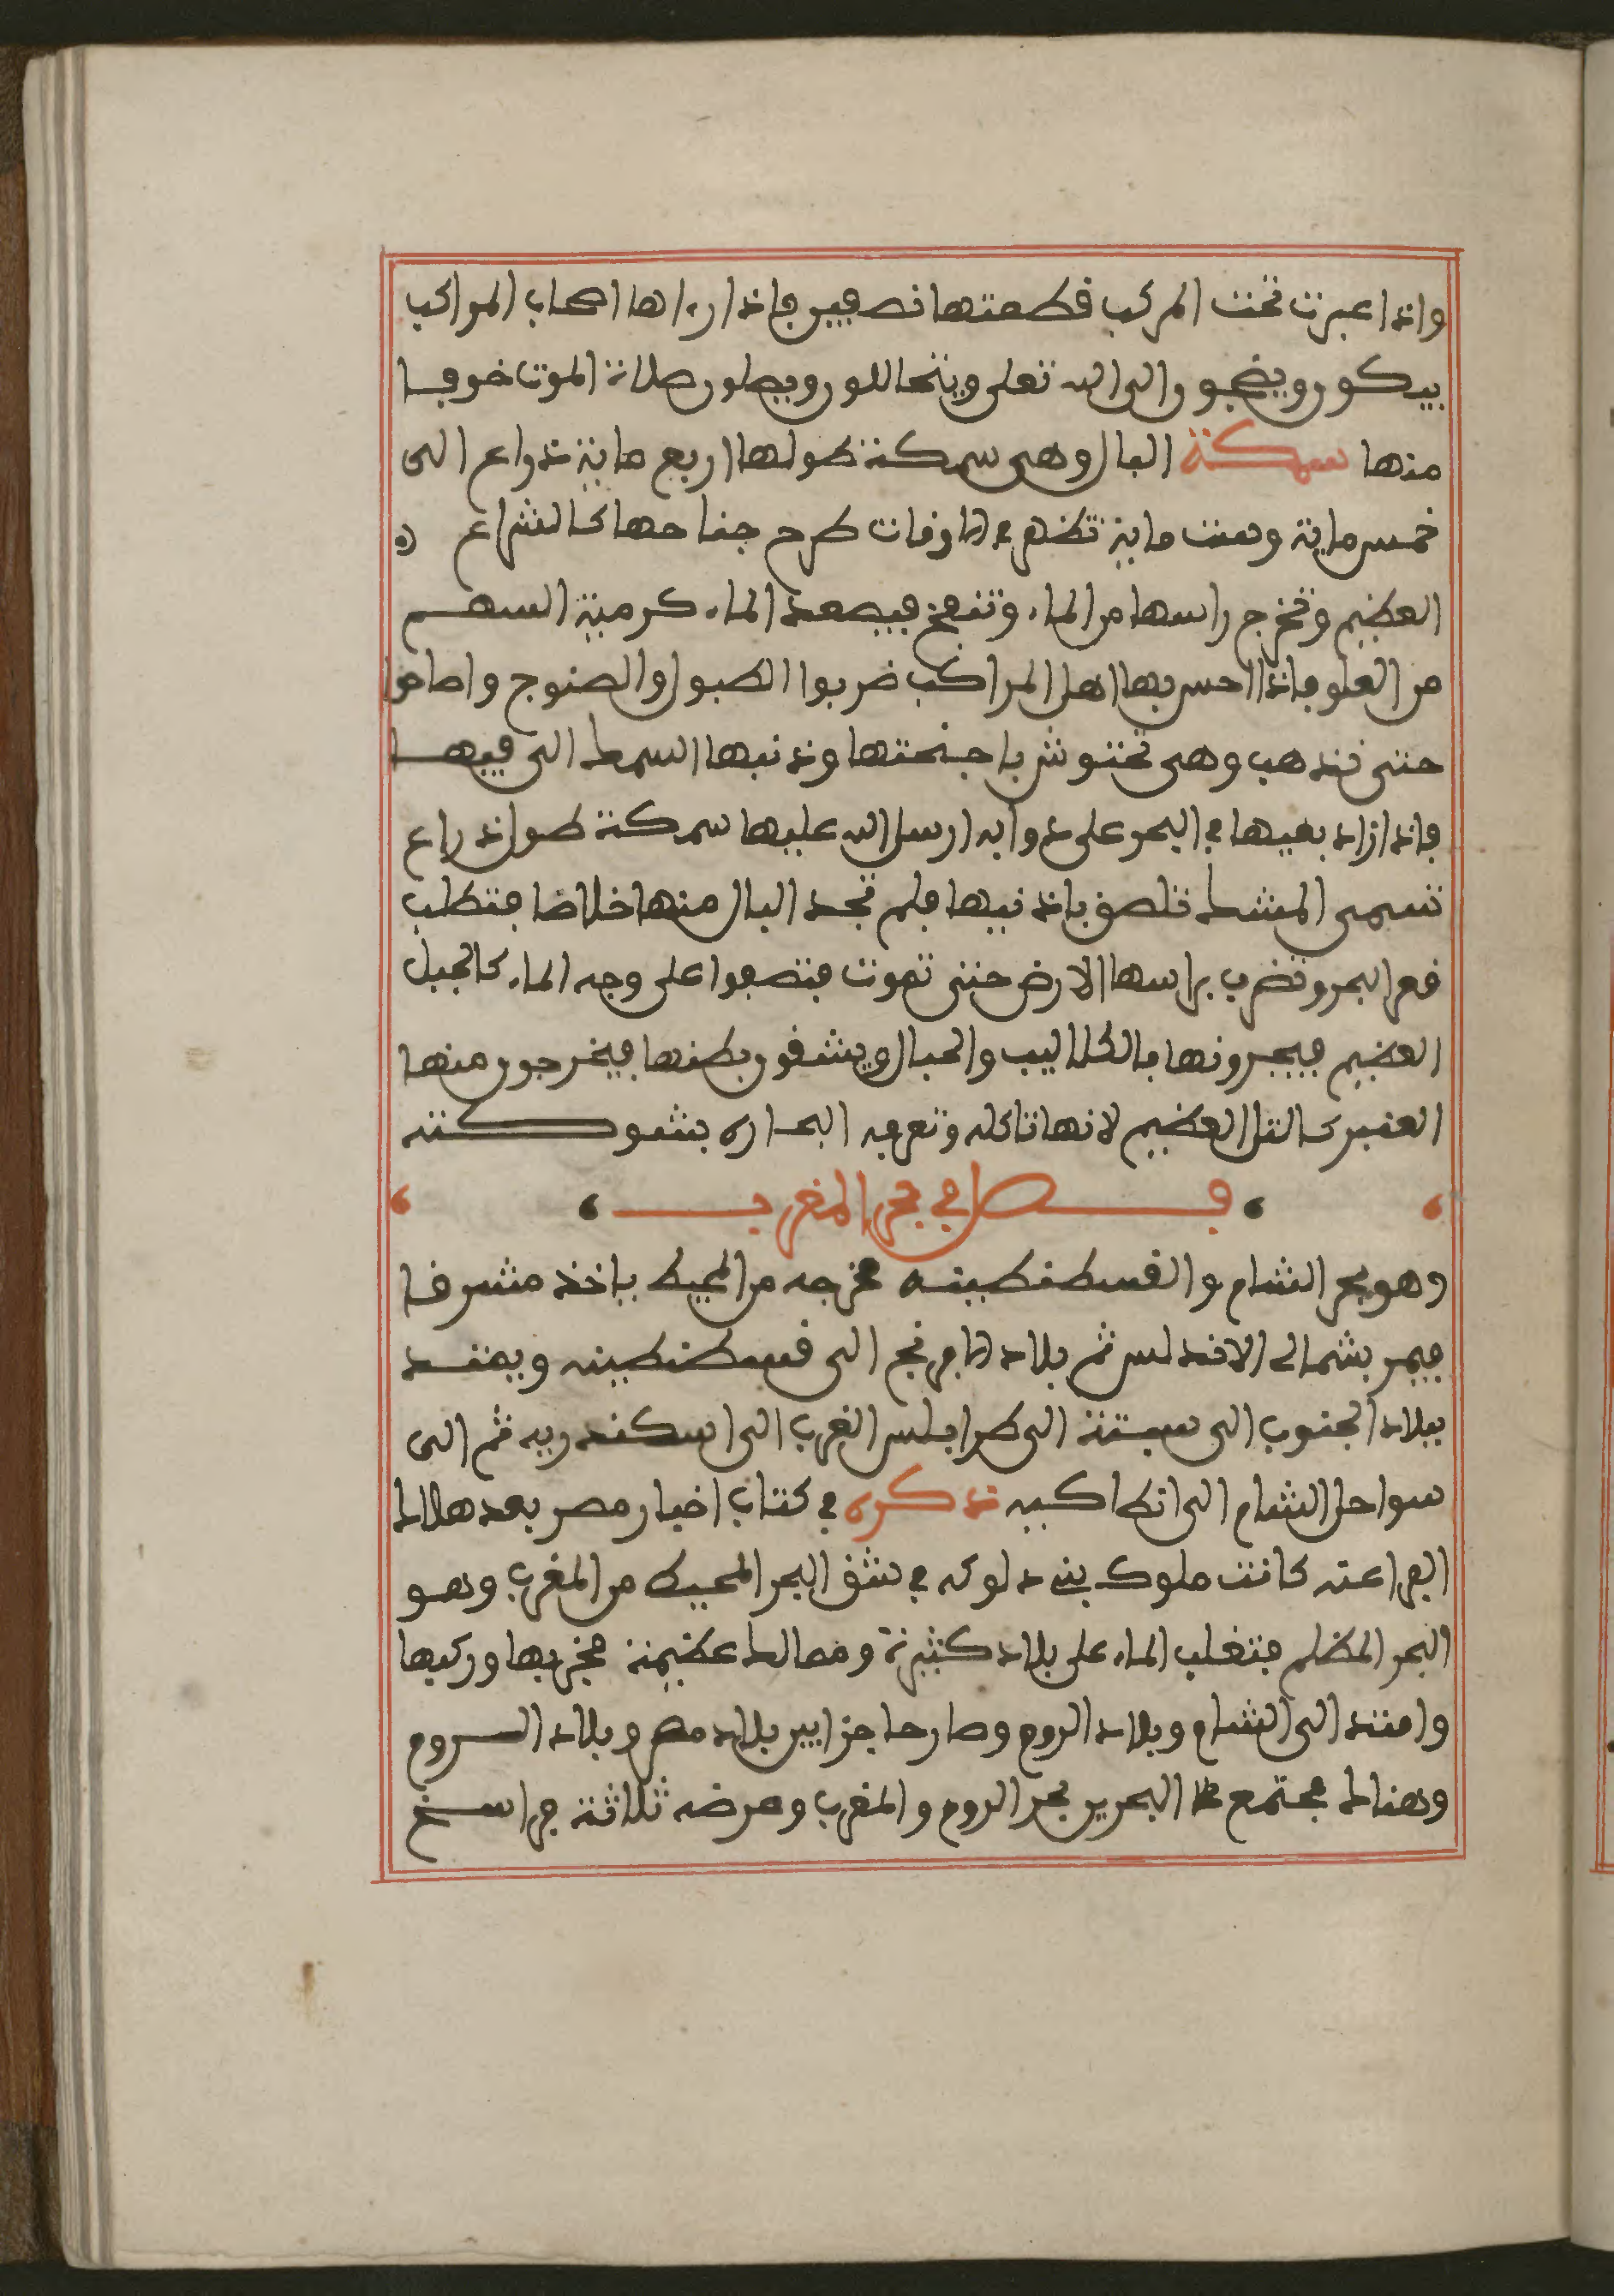 واذا عبرت تحت المركب قطعتها نصفين فاذا رءاها اصحاب المراكب
يبكون ويضجون الى الله تعلى ويتحاللون ويصلون صلاة الموت خوفا
منها سمكة البال وهى سمكة طولها اربع ماية ذراع الى
خمس ماية وست ماية تظهر في الاوقات طرح جناحها كالشراع
العظيم وتخرج راسها من الماء وتنفخ فيصعد الماء كرمية السهم
من العلو فاذا احس بها اهل المراكب ضربوا الطبول والصنوج وصاحوا
حتى تذهب وهى تحتوش باجنحتها وذنبها السمك الى فيها
فاذا زاد بغيها في البحر على دوابه ارسل الله عليها سمكة طول ذراع
تسمى المشط تلصق باذنيها فلم تجد البال منها خلاصا فتطلب
قعر البحر وتضرب براسها الارض حتى تموت فتصعوا على وجه الماء كالجبل
العظيم فيجرونها بالكلاليب والحبال ويشقون بطنها فيخرجون منها
العنبر كالتل العظيم لانها تاكله وتعرفه البحاره بشوكته
فصل في بحر المغرب
وهو بحر الشام والقسطنطينه مخرجه من المحيط ياخذ مشرقا
فيمر بشمالى الاندلس ثم بلاد الافرنج الى قسطنطينه ويمتد
ببلاد الجنوب الى سبتة الى طرابلس الغرب الى اسكندريه ثم الى
سواحل الشام الى انطاكيه ذكره في كتاب اخبار مصر بعد هلاك
الفراعنه كانت ملوك بني دلوكه في شق البحر المحيط من المغرب وهو
البحر المظلم فتغلب الماء على بلاد كثيرة وممالك عظيمة فخربها وركبها
وامتد الى الشام وبلاد الروم وصار حاجزا بين بلاد مصر وبلاد الروم
وهناك مجتمع البحرين بحر الروم والمغرب وعرضه ثلاثة فراسخ